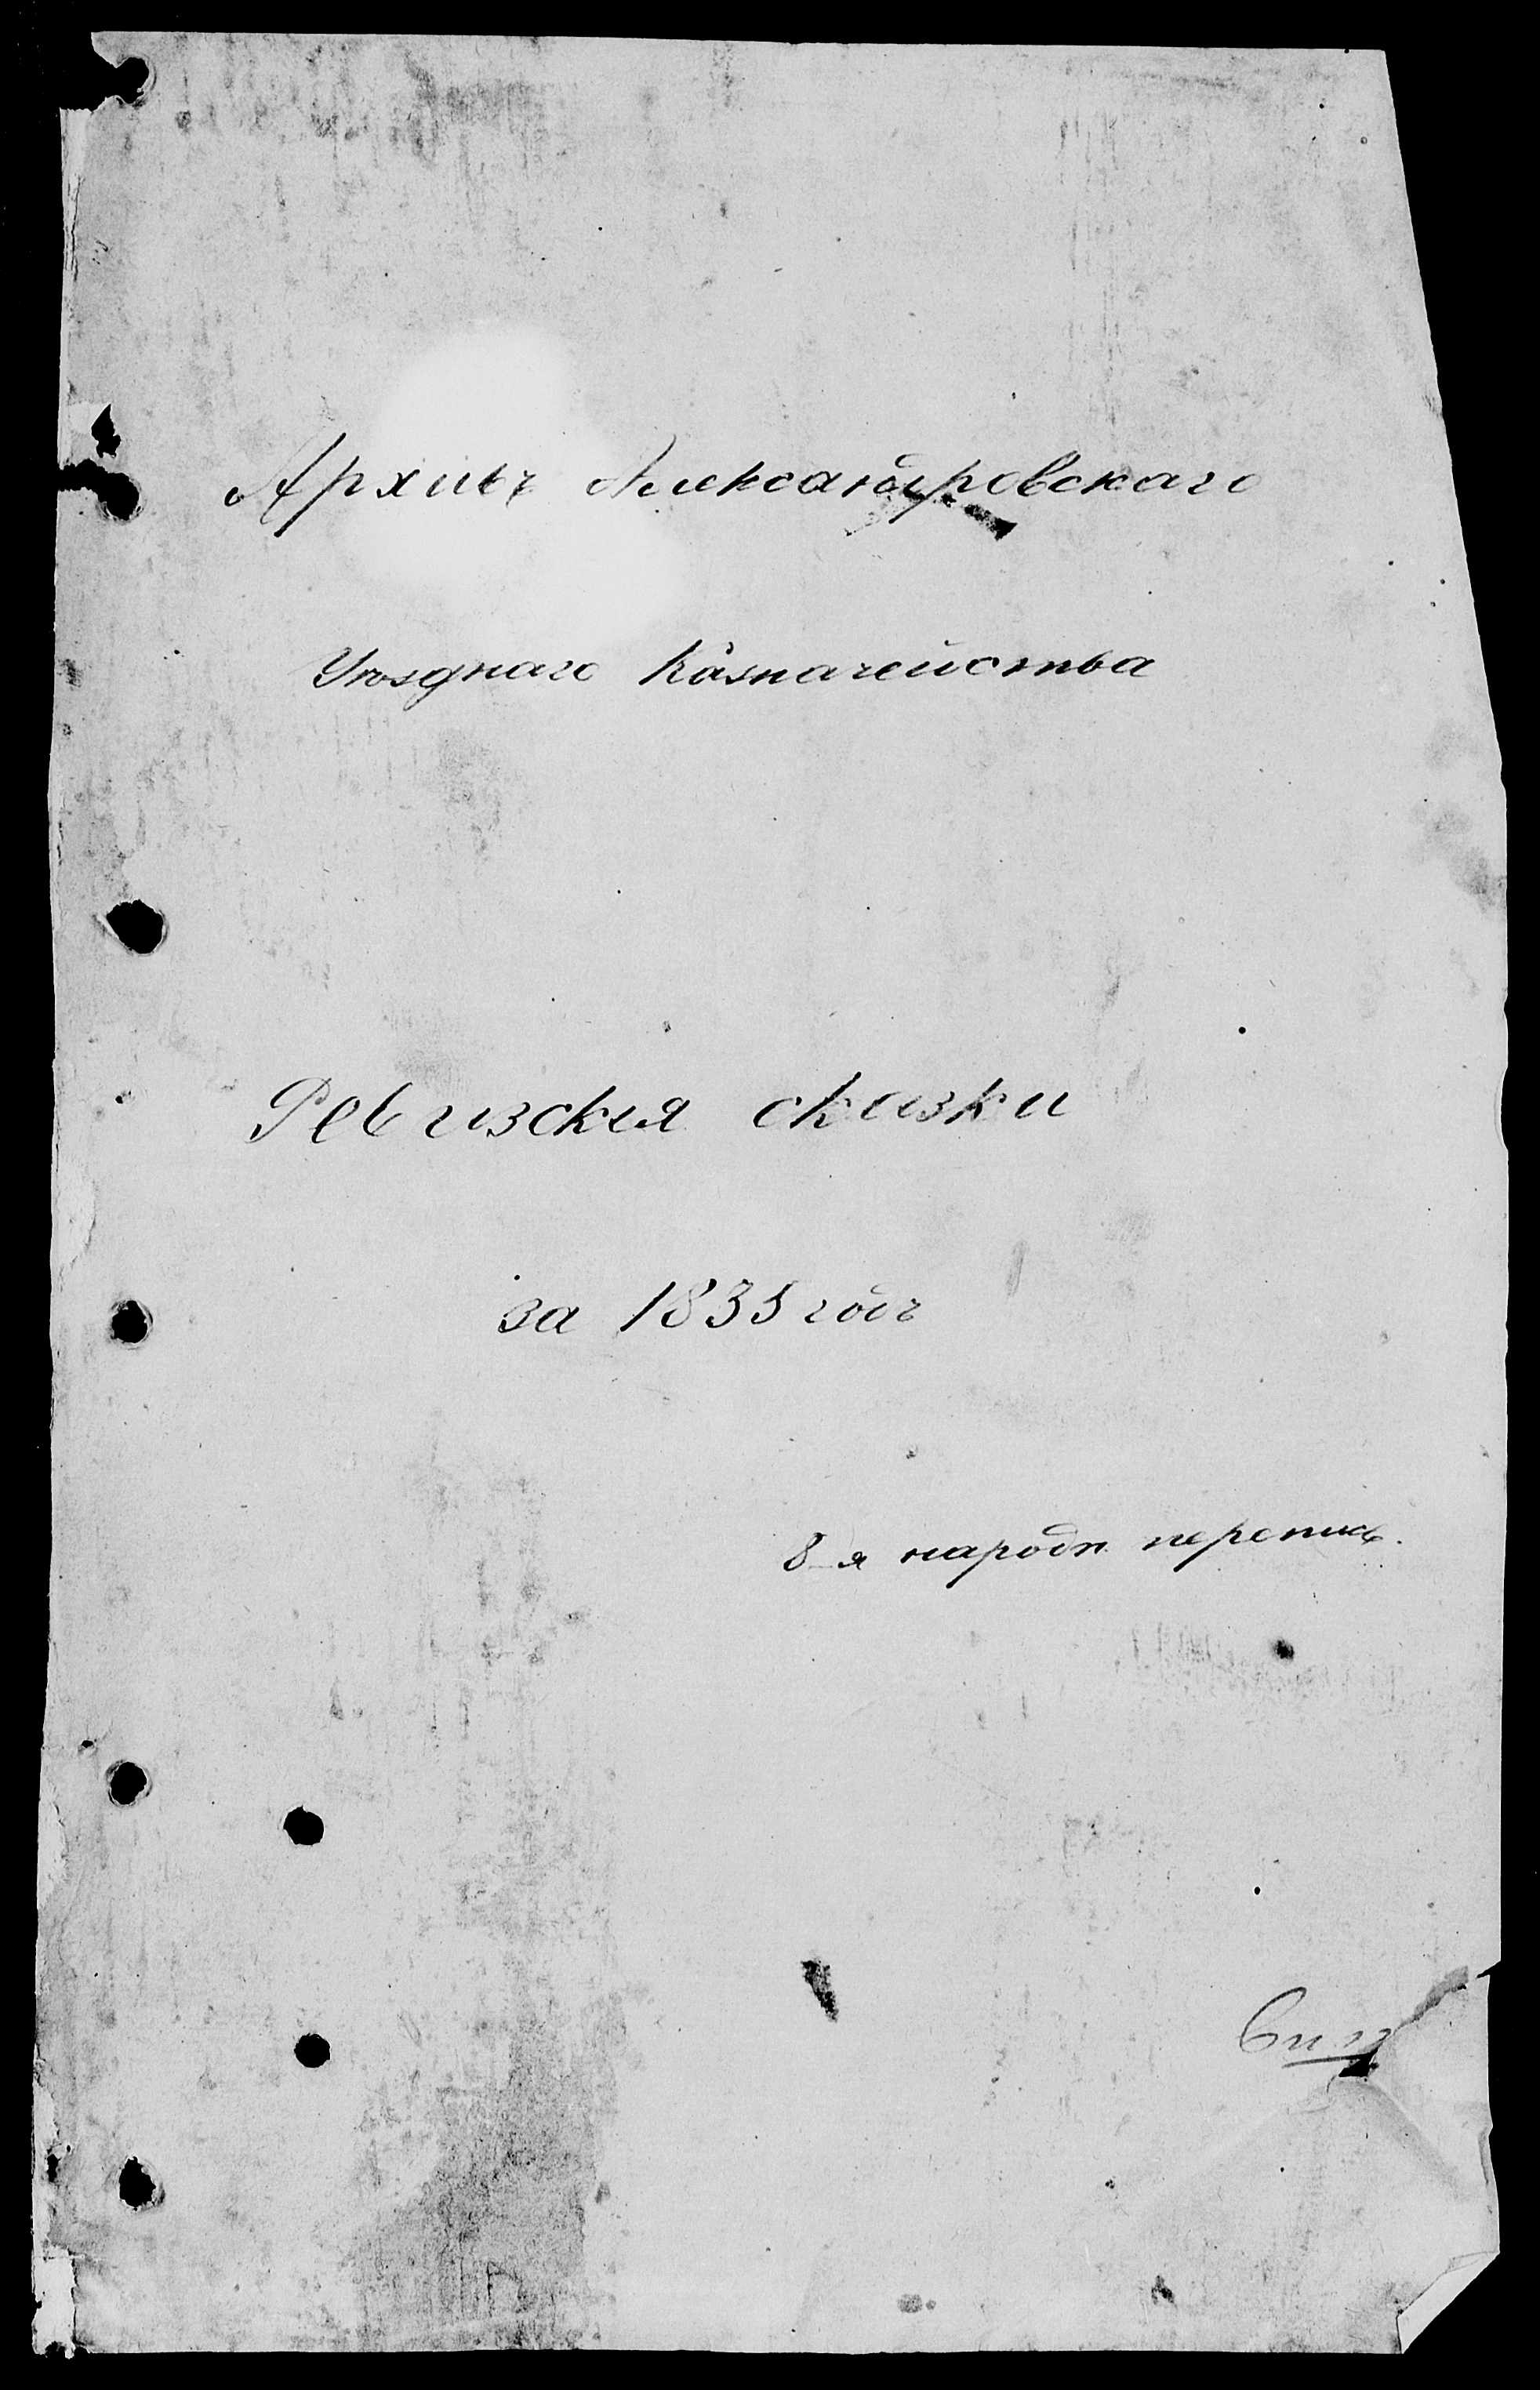 Архивъ Александровскаго
Уѣзднаго Казначейства
Ревизскія сказки
за 1835 годъ
8-я народн. перепись.